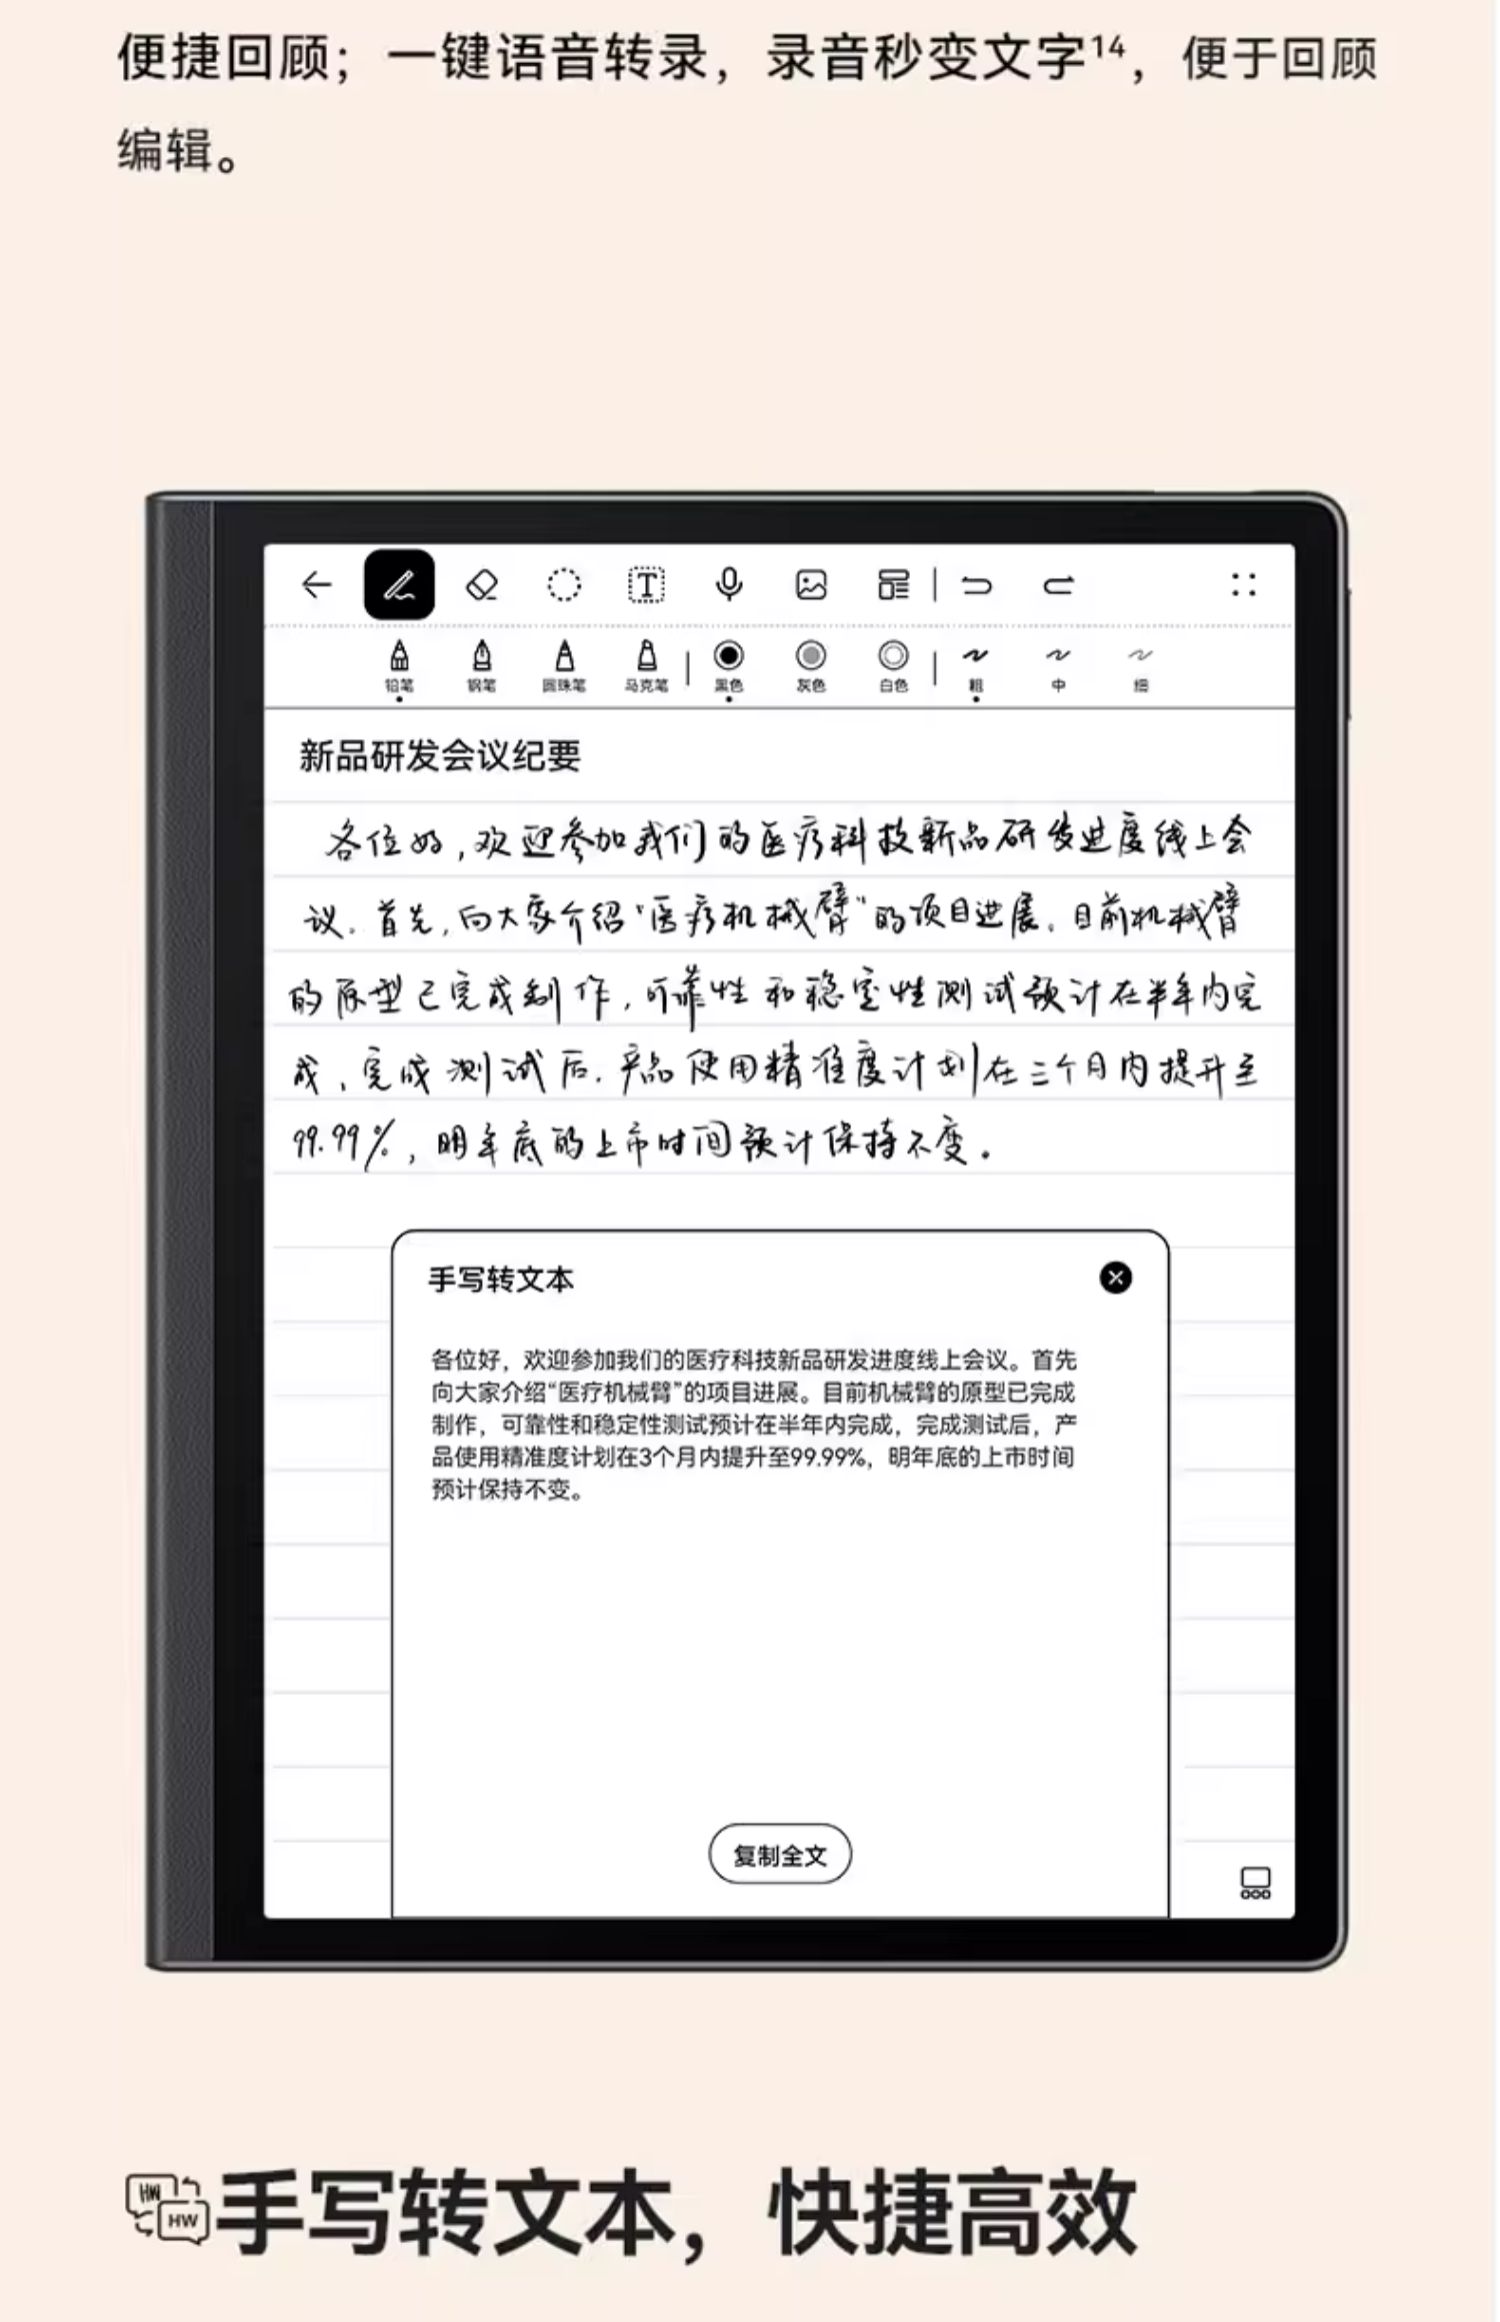 便捷回顾；一键语音转录，录音秒变文字¹⁴，便于回顾
编辑。
T
铅笔 钢笔 圆珠笔 马克笔 黑色 灰色 白色 粗 中 细
新品研发会议纪要
各位好,欢迎参加我们的医疗科技新品研发进度线上会
议。首先,向大家介绍“医疗机械臂”的项目进展。目前机械臂
的原型已完成制作,可靠性和稳定性测试预计在半年内完
成,完成测试后.产品使用精准度计划在三个月内提升至
99.99%,明年底的上市时间预计保持不变。
手写转文本
各位好，欢迎参加我们的医疗科技新品研发进度线上会议。首先
向大家介绍“医疗机械臂”的项目进展。目前机械臂的原型已完成
制作，可靠性和稳定性测试预计在半年内完成，完成测试后，产
品使用精准度计划在3个月内提升至99.99%，明年底的上市时间
预计保持不变。
复制全文
HW
HW
手写转文本，快捷高效